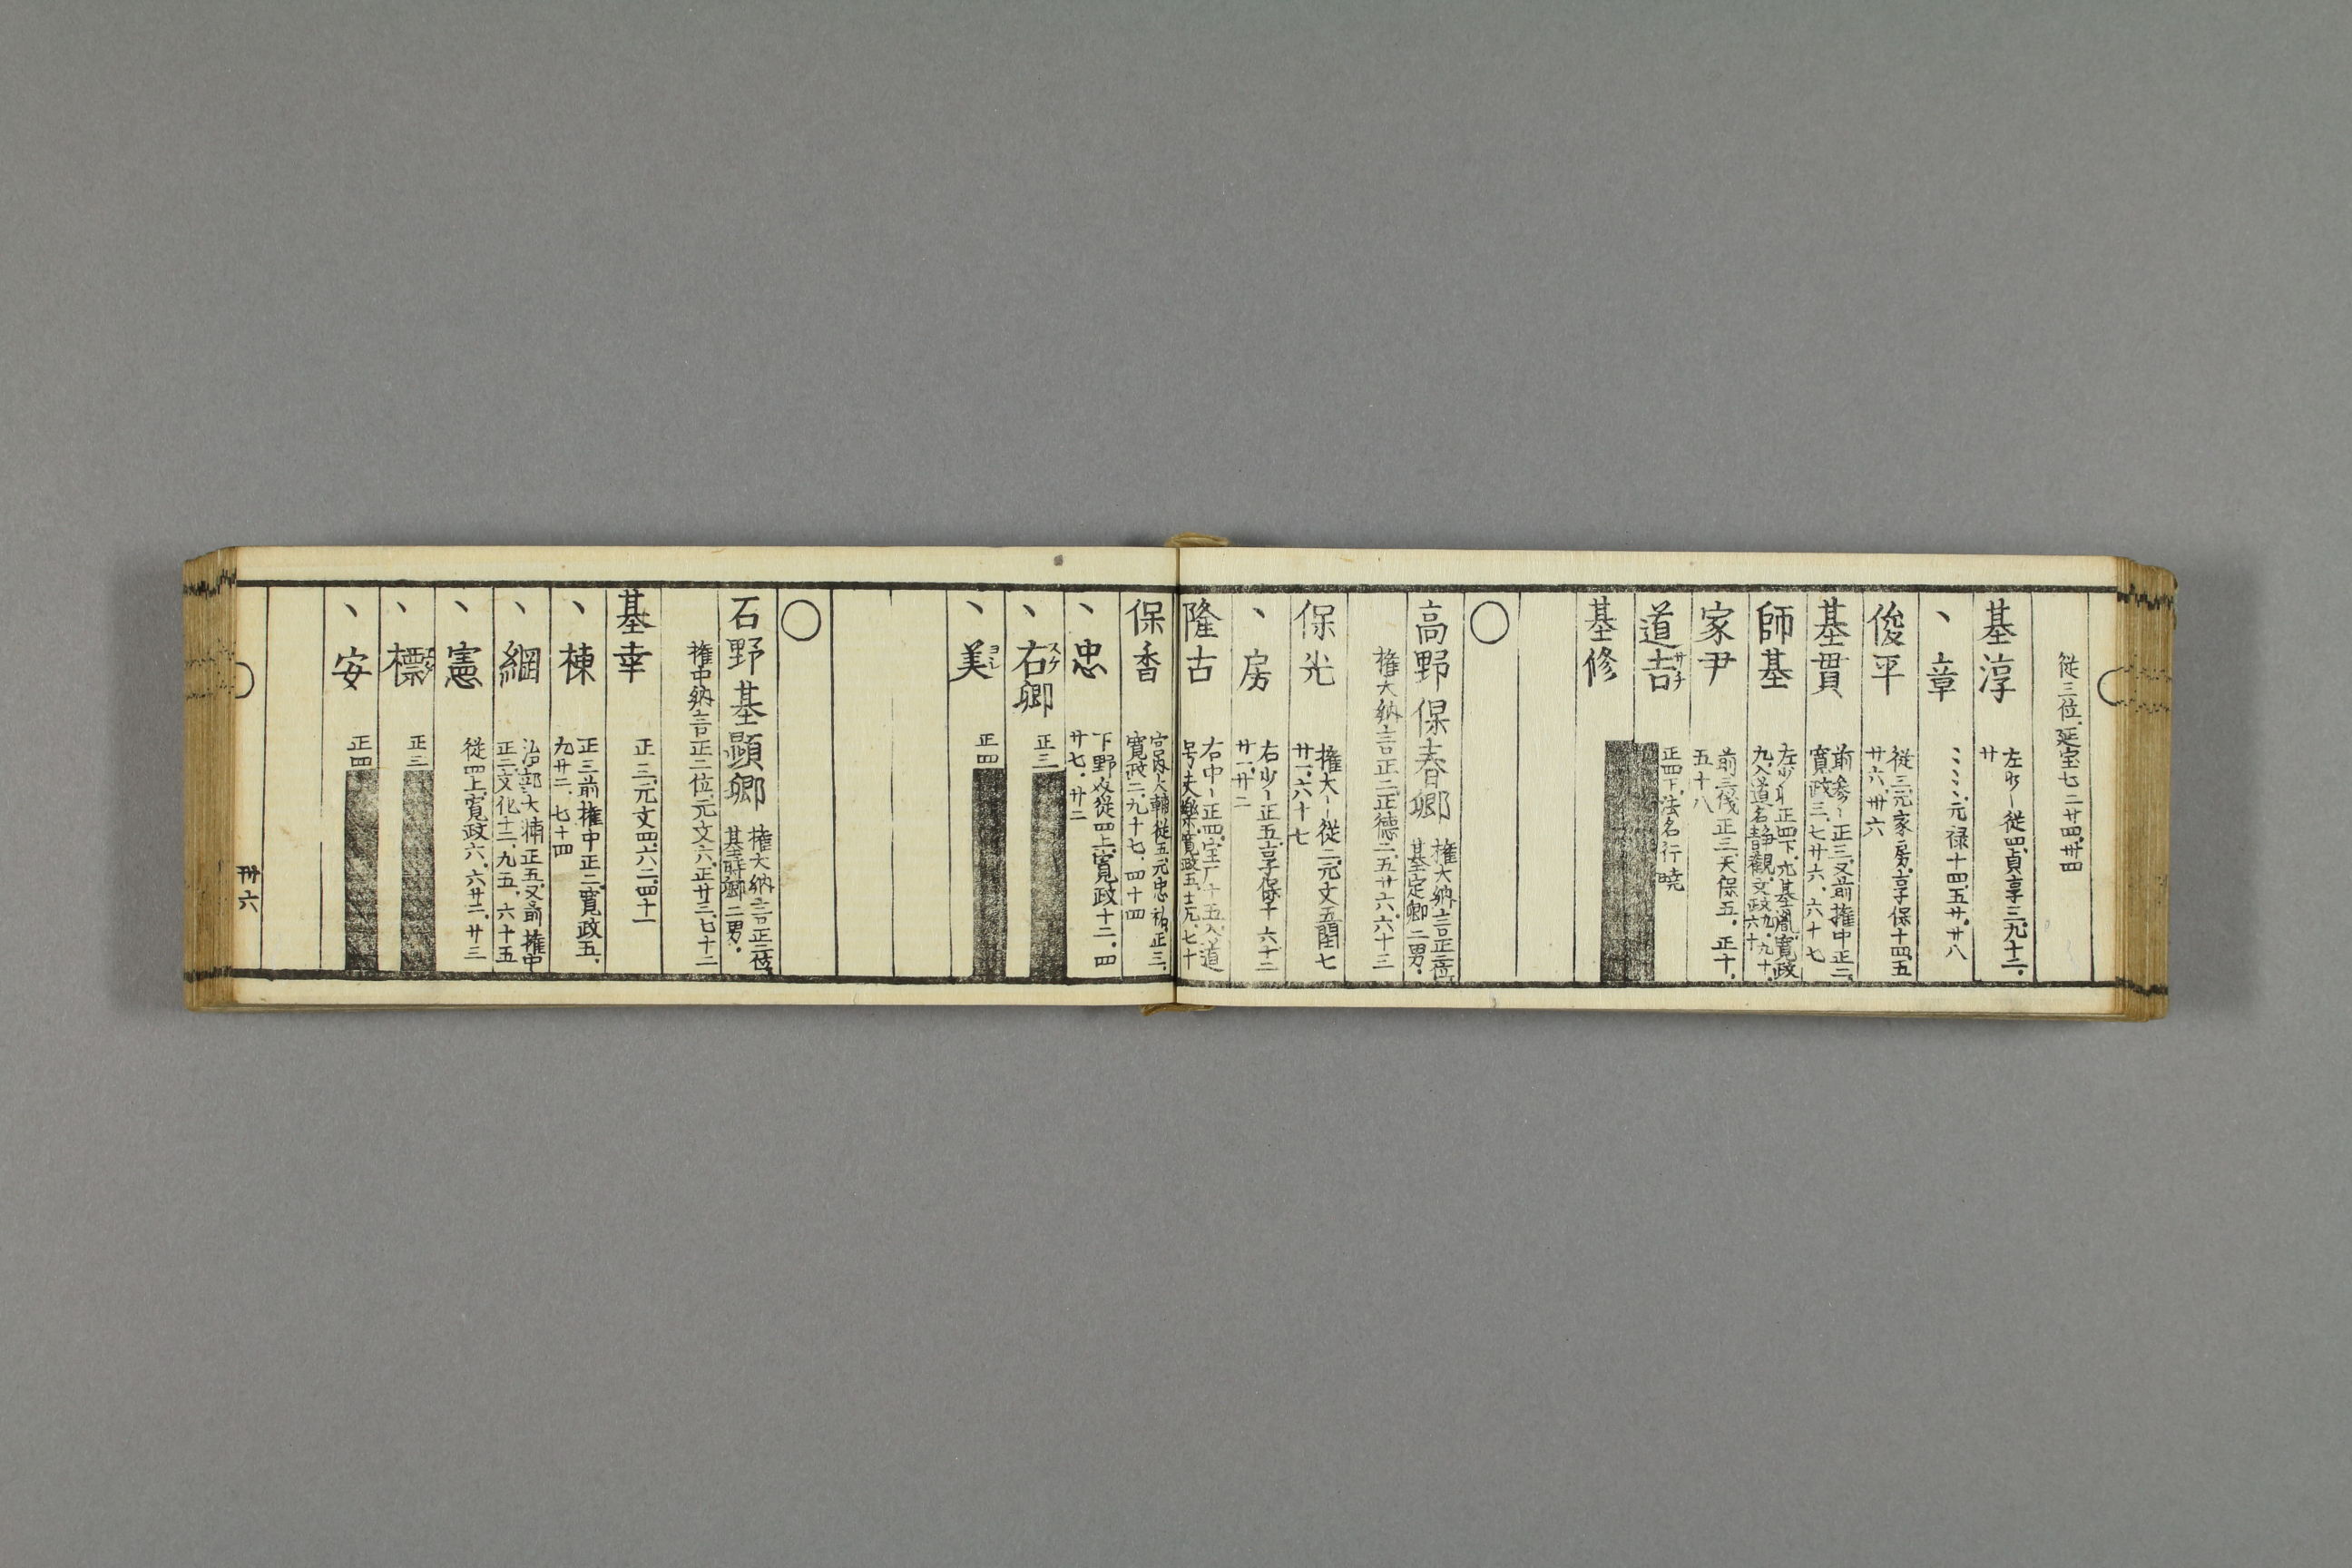 従三位、延宝七二廿四、卅四
基淳 左少ー従四、貞享三、九、十二、
廿
、章 ミミミ、元禄十四、五廿、廿八
俊平 従三元家房、享保十四、五
廿六、卅六
基貫 前参ー正三、又前権中正二、
寛政三、七廿六、六十七
師基 左少ー正四下、元基胤、寛政
九、入道名静観、文政九、九十、六十
家尹 前三位正三、天保五、正十、
五十八
道吉 サチ 正四下、法名行暁
基修
〇
高野保春卿 権大納言正二位
基定卿二男、
権大納言正二正徳二、五廿六、六十三
保光 権大ー従二元文五閏七
廿一、六十七
、房 右少ー正五、享保十六、十二
廿一、廿二
隆古 右中ー正四、宝厂十五、入道
号夫楽、寛政五、十七、七十
保香 宮内大輔従五、元忠祐、正三、
寛政二、九十七、四十四
、忠 下野守従四上、寛政十二、四
廿七、廿二
、右卿 スケ 正三
、美 ヨシ 正四
〇
石野基顕卿 権大納言正二位
基時卿二男、
権中納言正二位、元文六、正廿三、七十二
基幸 正三、元文四、六二、四十一
、棟 正三前権中正二、寛政五、
九廿二、七十四
、綱 治部大輔正五、又前権中
正二、文化十二、九五、六十五
、憲 従四上、寛政六、六廿二、廿三
、標 正三
、安 正四
卅六